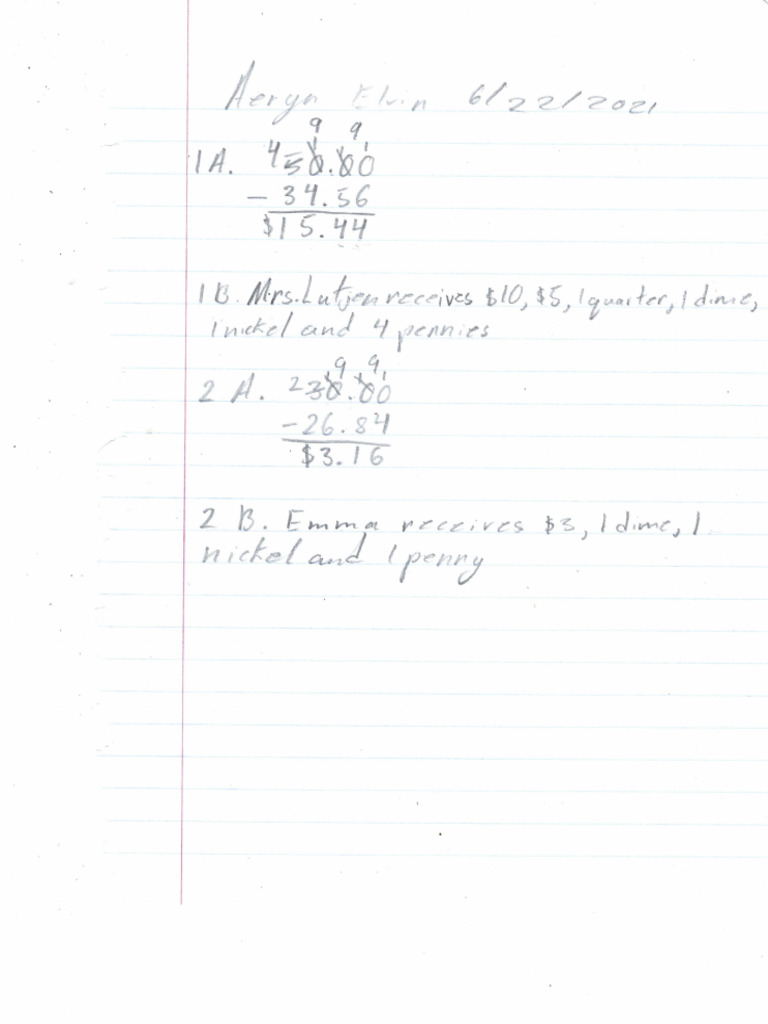 Aeryn Elvin 6/22/2021
9 9
1A. 4 50.00
- 34.56
$15.44
1B. Mrs. Lutjen receives $10, $5, 1 quarter, 1 dime,
1 nickel and 4 pennies
9 9
2 A. 2 30.00
-26.84
$3.16
2 B. Emma receives $3, 1 dime, 1
nickel and 1 penny